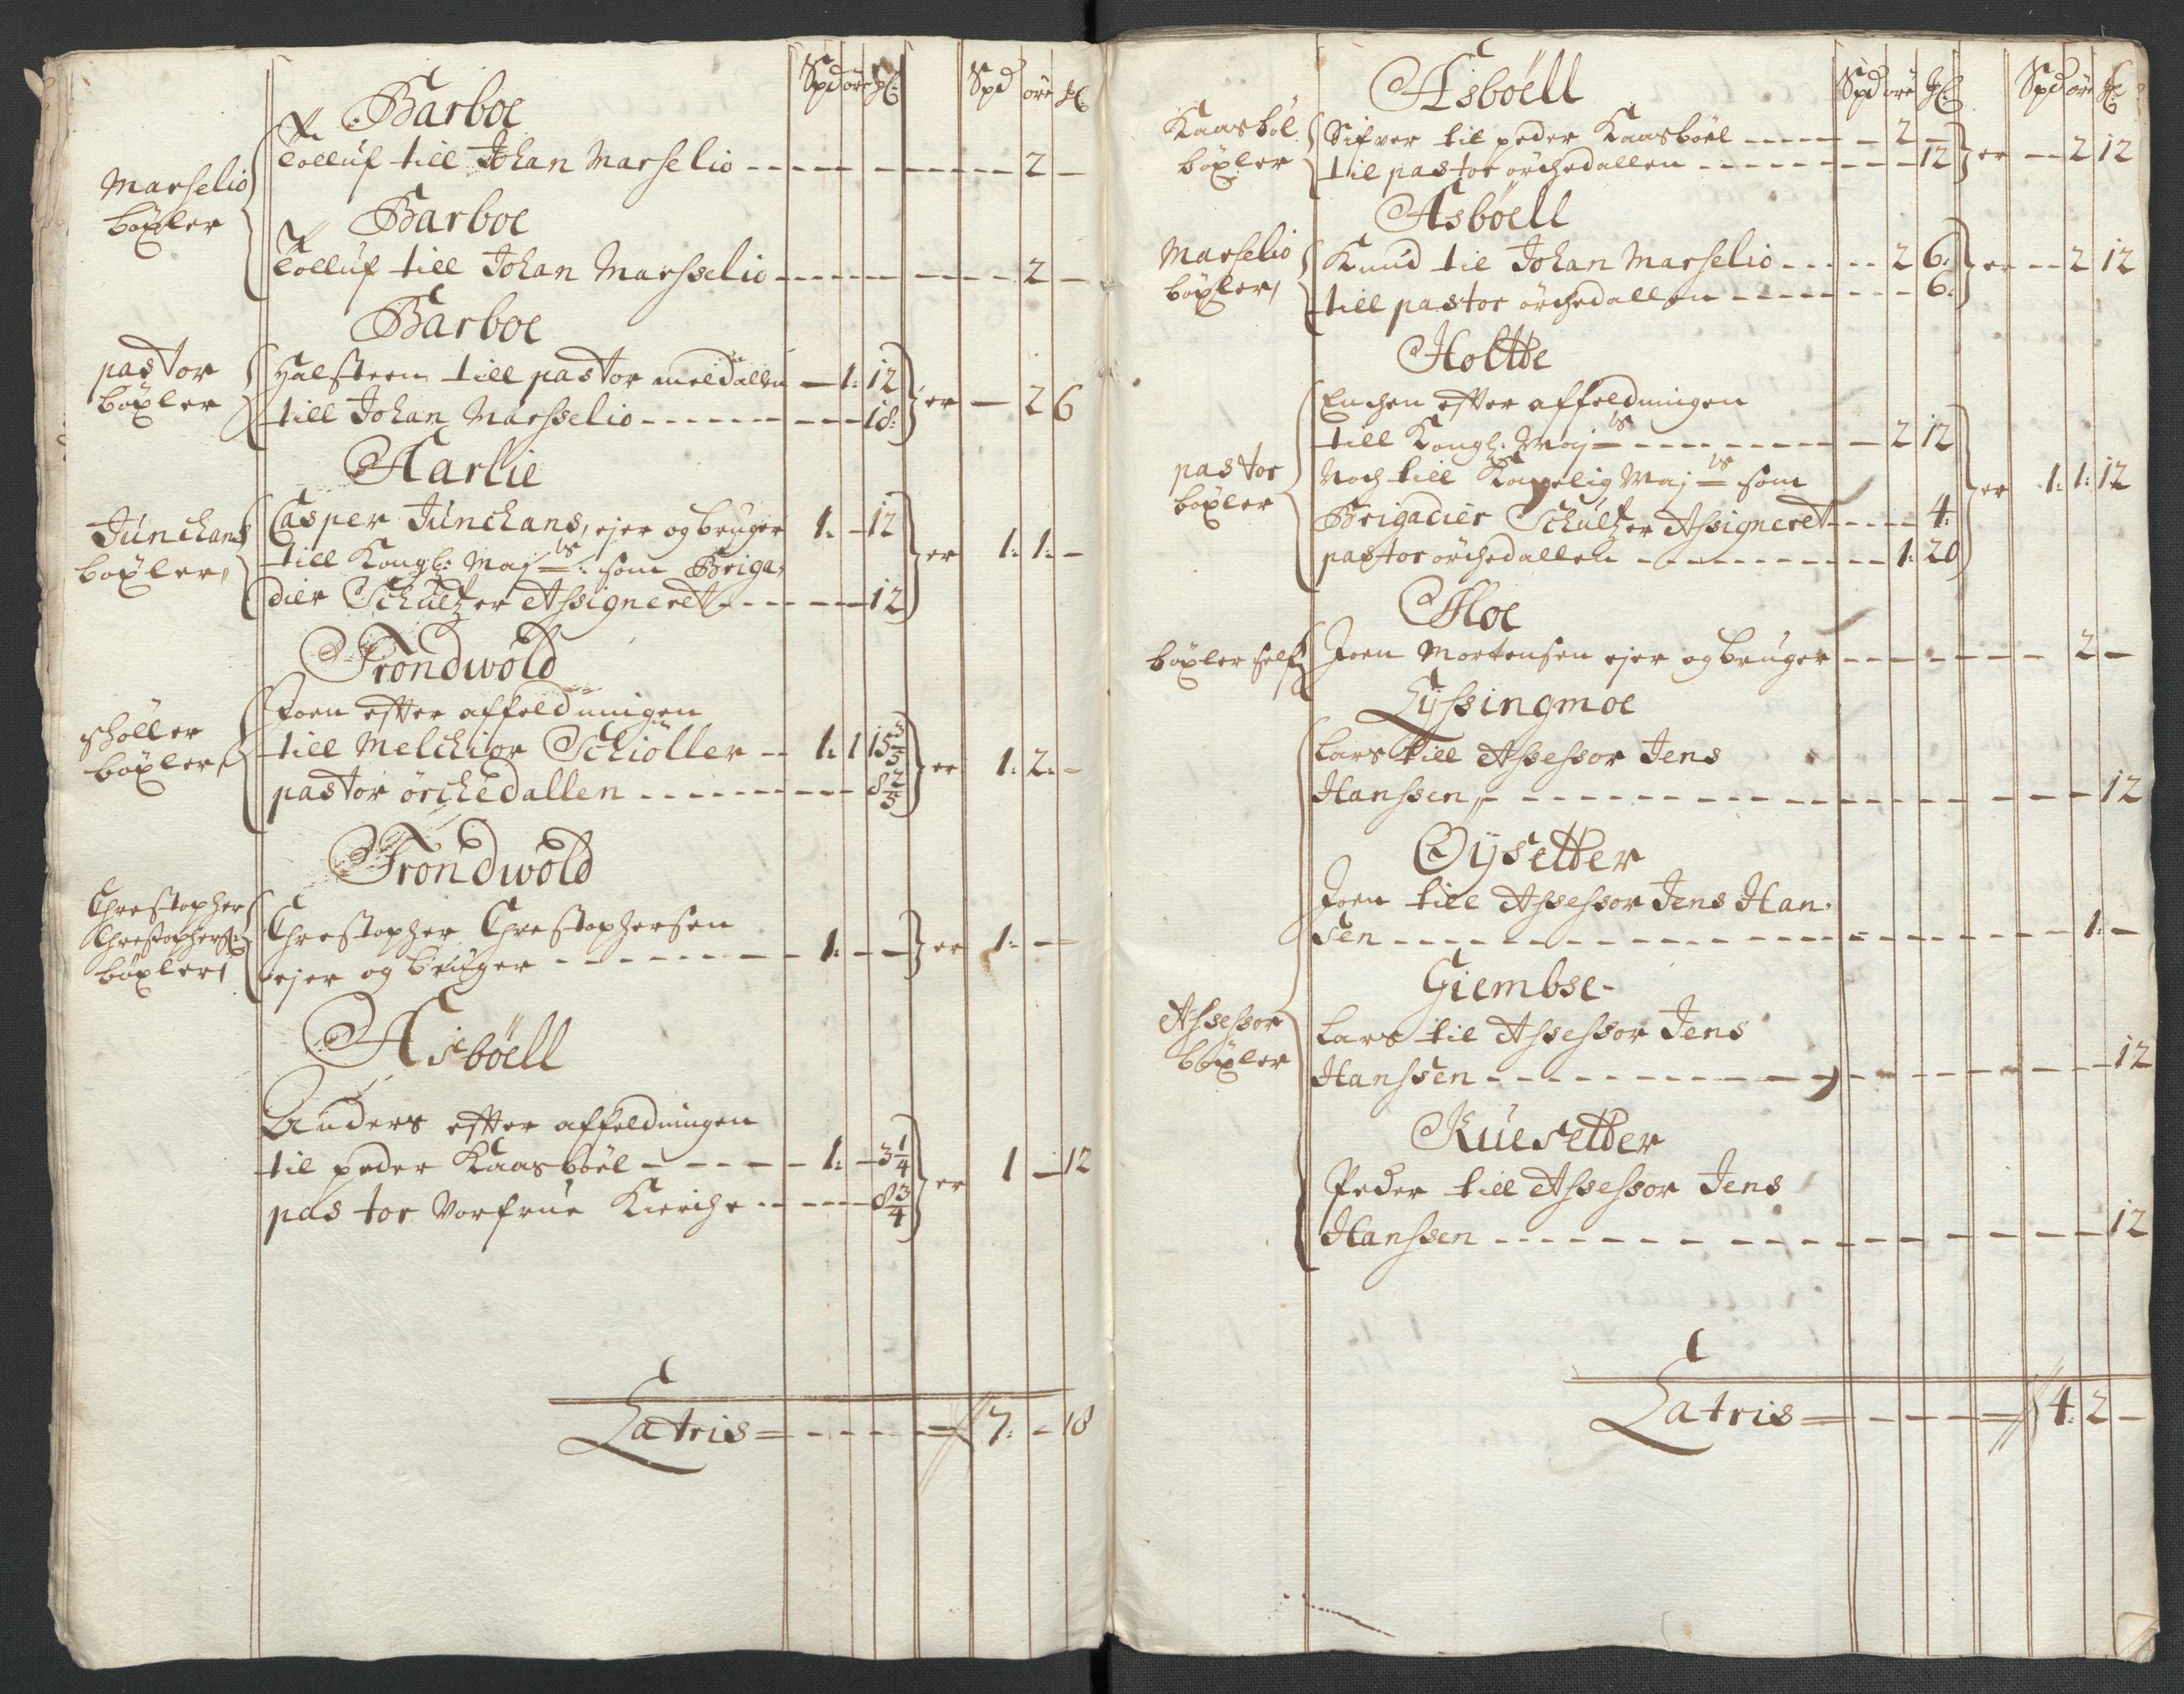 Spd öre
Spd öre
Barboe
Marselio
böxler
Tolluf till Johan Marselio - - - 2 -
Barboe
Tolluf till Johan Marsselio - - - 2 -
Barboe
pastor
böxler
Halsteen till pastor meldallen - 1: 12
till Johan Marsselio - - - 18: er - 2 6
Aarlie
Junchans
böxler
Casper Junchans, ejer og bruger 1: - 12
till Kongl: Maj ts: som Briga,
dier Schultz er Assigneret - - - 12 er 1: 1: -
Trondwold
schöller
böxler
Joen efter affeldningen
till Melchior Schiöller - - 1: 1 15 3/5
pastor örchedallen - - - 8 2/5 er 1: 2: -
Trondwold
Chrestopher
Chrestophers:
böxler
Chrestopher Chrestophersen
ejer og bruger - - - 1: - - er 1: - -
Asböell
Anders efter affeldningen
til peder Kaasböel - - - 1: - 3 1/4
pastor Vorfrue Kierche - - - 8 3/4 er 1 - 12
Latris = - - - 7: - 18
Spd öre
Spd öre
Asböell
Kaasböl
böxler
Sifver til peder Kaasböel - - - 2 -
til pastor örchedallen - - - 12 er - - 2 12
Asböell
Marselio
böxler
Knud til Johan Marselio - - - 2 6:
till pastor örchedallen - - - 6: er - - 2 12
Holtte
pastor
böxler
Enchen efter affeldningen
till Kongl: Maj ts - - - 2 12
Noch till Kongelig Maj ts som
Brigadier Schultz er Assigneret - - - 4:
pastor örchedallen - - - 1: 20 er 1: 1: 12
Moe
böxler self
Joen Mortensen ejer og bruger - - - 2 -
Lyssingmoe
Lars till Assessor Jens
Hanssen - - - 12
Öysetter
Joen till Assessor Jens Han,
sen - - - 1: -
Giembse-
Assessor
böxler
Lars til Assessor Jens
Hanssen - - - 12
Kuesetter
Peder till Assessor Jens
Hanssen - - - 12
Latris = - - - 4: 2 -